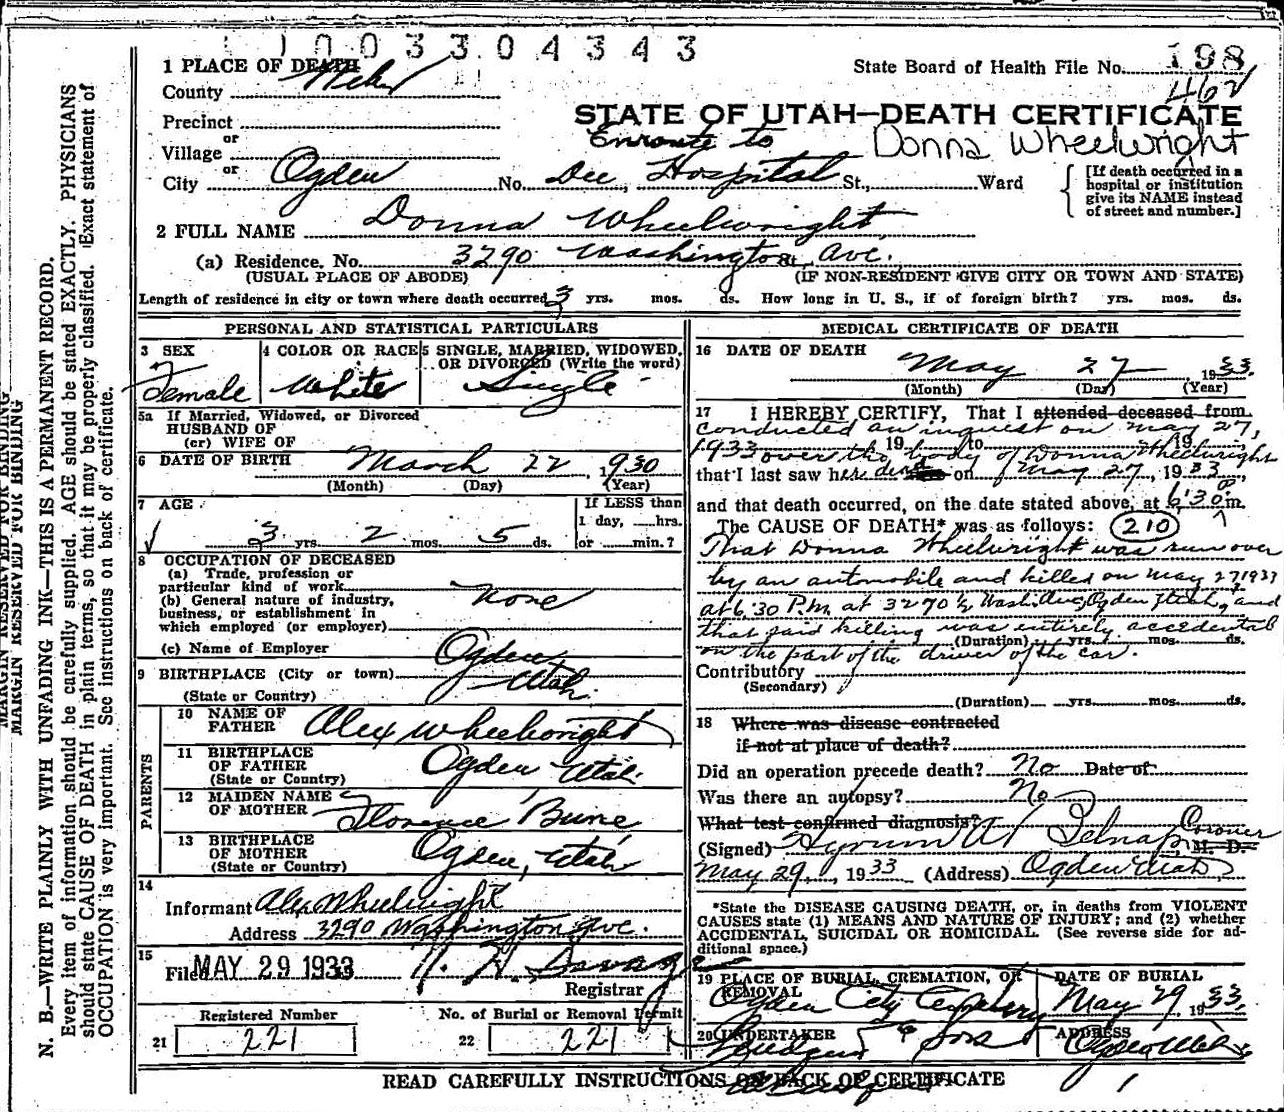 1 0 0 3 3 0 4 3 4 3
1 PLACE OF DEATH
County Weber
State Board of Health File No. 198
462
STATE OF UTAH—DEATH CERTIFICATE
Precinct
or
Village
Enroute to
Donna Wheelwright
or
City Ogden No. Dee Hospital St., Ward
[If death occurred in a
hospital or institution
give its NAME instead
of street and number.]
2 FULL NAME Donna Wheelwright
(a) Residence, No. 3290 Washington St. Ave.
(USUAL PLACE OF ABODE) (IF NON-RESIDENT GIVE CITY OR TOWN AND STATE)
Length of residence in city or town where death occurred 3 yrs. mos. ds. How long in U. S., if of foreign birth? yrs. mos. ds.
PERSONAL AND STATISTICAL PARTICULARS
3 SEX
Female
4 COLOR OR RACE
White
5 SINGLE, MARRIED, WIDOWED,
OR DIVORCED (Write the word)
Single
5a If Married, Widowed, or Divorced
HUSBAND OF
(or) WIFE OF
6 DATE OF BIRTH March 22, 1930
(Month) (Day) (Year)
7 AGE
3 yrs. 2 mos. 5 ds.
If LESS than
1 day, hrs.
or min.?
8 OCCUPATION OF DECEASED
(a) Trade, profession or
particular kind of work
(b) General nature of industry,
business, or establishment in
which employed (or employer)
none
(c) Name of Employer
9 BIRTHPLACE (City or town) Ogden
(State or Country) Utah.
PARENTS
10 NAME OF
FATHER Alex Wheelwright
11 BIRTHPLACE
OF FATHER
(State or Country) Ogden Utah.
12 MAIDEN NAME
OF MOTHER Florence
13 BIRTHPLACE
OF MOTHER
(State or Country) Ogden, Utah
14
Informant Alex Wheelwright
Address 3290 Washington Ave.
15
Filed MAY 29 1933
Registrar
Registered Number
21 221
No. of Burial or Removal Permit
22 221
MEDICAL CERTIFICATE OF DEATH
16 DATE OF DEATH
May 27 1933.
(Month) (Day) (Year)
17 I HEREBY CERTIFY, That I attended deceased from
conducted an inquest on May 27,
19 to 19
1933 over the body of Donna Wheelwright
that I last saw her dead on May 27, 1933,
and that death occurred, on the date stated above, at 6:30 P m.
The CAUSE OF DEATH* was as follows: 210
That Donna Wheelwright was run over
by an automobile and killed on May 27 1933
at 6:30 P.M. at 3270 1/2 Wash. Ave, Ogden Utah, and
that said killing was entirely accidental
(Duration) yrs. mos. ds.
on the part of the driver of the car.
Contributory
(Secondary)
(Duration) yrs. mos. ds.
18 Where was disease contracted
if not at place of death?
Did an operation precede death? No Date of
Was there an autopsy? No
What test confirmed diagnosis?
Coroner
(Signed) Hyrum M. D.
May 29, 1933 (Address) Ogden Utah
*State the DISEASE CAUSING DEATH, or, in deaths from VIOLENT
CAUSES state (1) MEANS AND NATURE OF INJURY; and (2) whether
ACCIDENTAL, SUICIDAL OR HOMICIDAL. (See reverse side for ad-
ditional space.)
19 PLACE OF BURIAL, CREMATION, OR
REMOVAL
Ogden City Cemetery
DATE OF BURIAL
May 29, 1933.
20 UNDERTAKER
& Sons
ADDRESS
Ogden Utah
READ CAREFULLY INSTRUCTIONS ON BACK OF CERTIFICATE
MARGIN RESERVED FOR BINDING
MARGIN RESERVED FOR BINDING
N. B.—WRITE PLAINLY WITH UNFADING INK—THIS IS A PERMANENT RECORD.
Every item of information should be carefully supplied. AGE should be stated EXACTLY. PHYSICIANS
should state CAUSE OF DEATH in plain terms, so that it may be properly classified. Exact statement of
OCCUPATION is very important. See instructions on back of certificate.